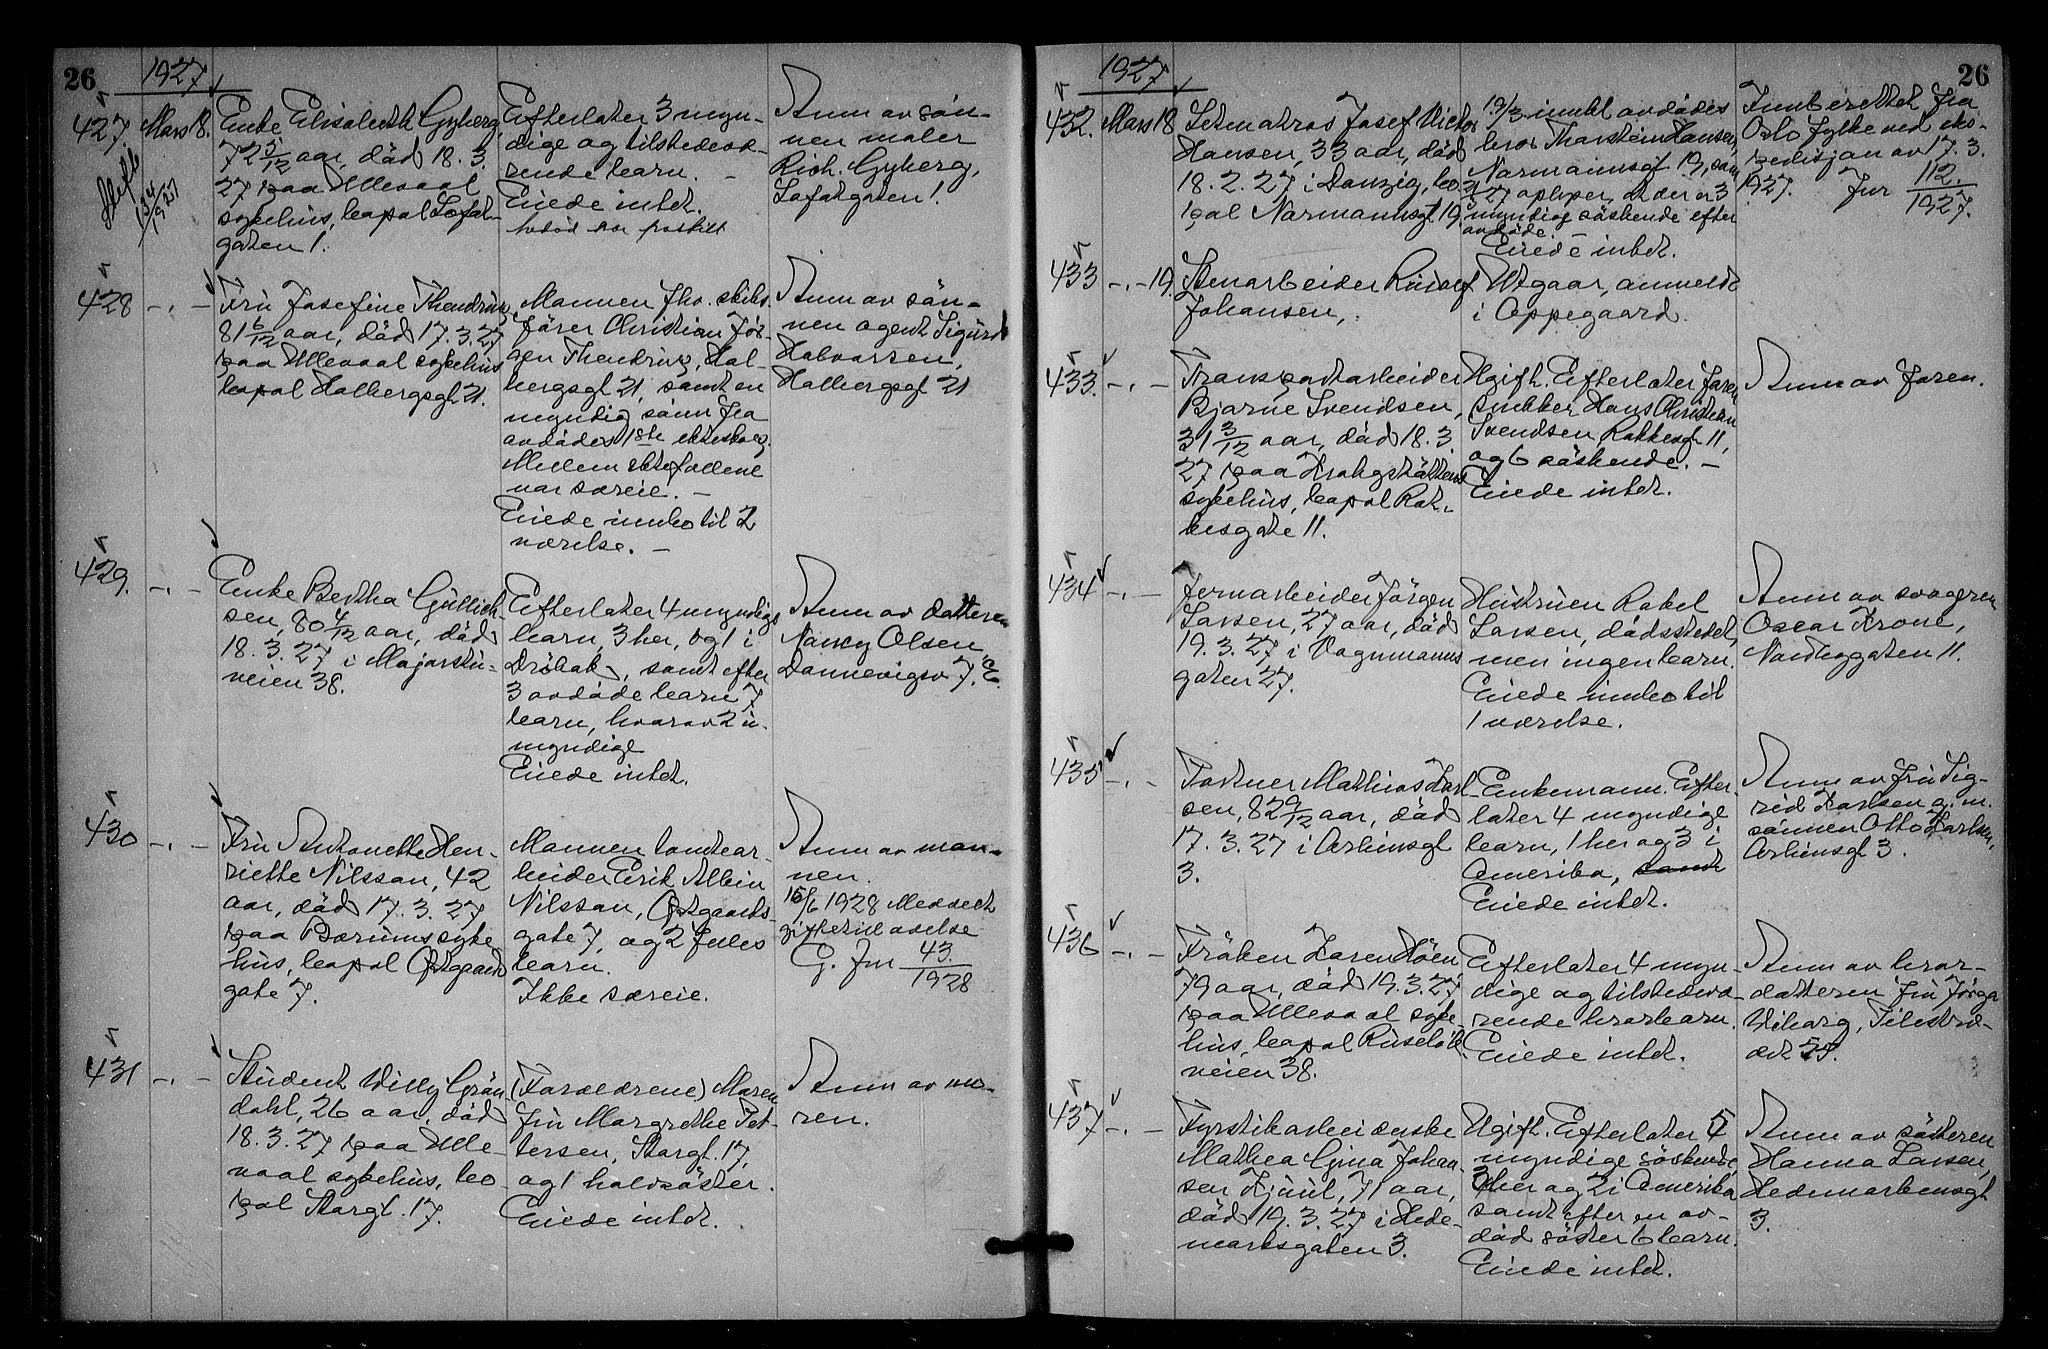 26
1927
427. Mars 18.
Enke Elisabeth Gyberg
72 5/12 aar, död 18.3.
27 paa Ullevaal
sykehus, bopal Lofot-
gaten 1.
Efterlater 3 myn-
dige og tilstedevæ-
rende barn. –
Eiede intet.
Anm av søn-
nen maler
Rich. Gyberg,
Lofotgaten 1.
134/1927
428 -.-
Fru Josefine Thendrup
81 6/12 aar, död 17.3.27
paa Ullevaal sykehus
bopal Holbergsgt 21.
Mannen fhv. skibs-
förer Christian Jör-
gen Thendrup, Hol-
bergsgt 21, samt en
myndig sönn fra
avdödes 1ste ekteskap.
Mellem ektefællene
var særeie. –
Eiede innbo til 2
værelse. –
Anm av sön-
nen agent Sigurd
Halvorsen,
Holbergsgt 21
429. -.-
Enke Bertha Gullich-
sen, 80 4/12 aar, död
18.3.27 i Majorstu-
veien 38.
Efterlater 4 myndige
barn, 3 her, og 1 i
Dröbak, samt efter
3 avdöde barn 7
barn, hvorav 2 u-
myndige
Eiede intet.
Anm av datteren
Nancy Olsen,
Dannevigsv 7.
430 -.-
Fru Antonette Hen-
riette Nilsson, 42
aar, död 17.3.27
paa Bærums syke
hus, bopal Opsgaards
gate 7.
Mannen tomtear-
beider Erik Albin
Nilsson, Opsgaards-
gate 7, og 2 felles
barn.
Ikke særeie.
Anm av man-
nen.
15/6 1928 Meddelt
giftetillatelse
G. Jnr 43/1928
431 -.-
Student Willy Grön-
dahl, 26 aar, död
18.3.27 paa Ulle-
vaal sykehus, bo-
pal Storgt. 17.
(Forældrene) Moren
fru Margrethe Pet-
tersen, Storgt. 17,
og 1 halvsöster.
Eiede intet.
Anm av mo-
ren.
26
1927
432. Mars 18
Letmatros Josef Victor
Hansen, 33 aar, död
18.2.27 i Danzig, bo-
pal Normannsgt 19.
19/3 innkl avdödes
bror Thorstein Hansen,
Normannsgt 19, som
oplyser, at der er 3
myndige söskende efter
avdöde. –
Eiede intet.
Innberettet fra
Oslo fylke ved eks-
pedisjon av 17.3.
1927. Jnr 112/1927.
433 -.- 19.
Stenarbeider Rudolf
Johansen,
Utgaar, anmeldt
i Oppegaard.
433. -.-
Transportarbeider
Bjarne Svendsen,
31 3/12 aar, död 18.3
27 paa Krohgstöttens
sykehus, bopal Rat-
kesgate 11.
Ugift. Efterlater faren
snekker Hans Christian
Svendsen, Ratkesgt 11,
og 6 söskende. –
Eiede intet.
Anm av faren.
434 -.-
Jernarbeider Jörgen
Larsen, 27 aar, död
19.3.27 i Vognmanns
gaten 27.
Hustruen Rakel
Larsen, dödsstedet,
men ingen barn.
Eiede innbo til
1 værelse.
Anm av svogeren
Oscar Krone,
Nordbygaten 11.
435 -.-
Portner Mathias Karl-
sen, 82 9/12 aar, död
17.3.27 i Orknisgt
3.
Enkemann. Efter-
later 4 myndige
barn, 1 her og 3 i
Amerika, samt
Eiede intet.
Anm av fru Sig-
rid Karlsen g. m.
sönnen Otto Karlsen,
Orknisgt 3.
436 -.-
Fröken Karen Höen,
79 aar, död 19.3.27
paa Ullevaal syke-
hus, bopal Ruselök-
veien 38.
Efterlater 4 myn-
dige og tilstedevæ-
rende brorbarn.
Eiede intet.
Anm av bror-
datteren fru Jörga
Wiborg, Pilestræ-
det 55.
437 -.-
Fyrstikarbeiderske
Mathea Gina Johan-
sen Kjuul, 71 aar,
död 19.3.27 i Hede-
marksgaten 3.
Ugift. Efterlater 5
myndige söskende
3 her og 2 i Amerika
samt efter en av-
död söster 6 barn.
Eiede intet.
Anm av sösteren
Hanna Larsen,
Hedemarkensgt
3.